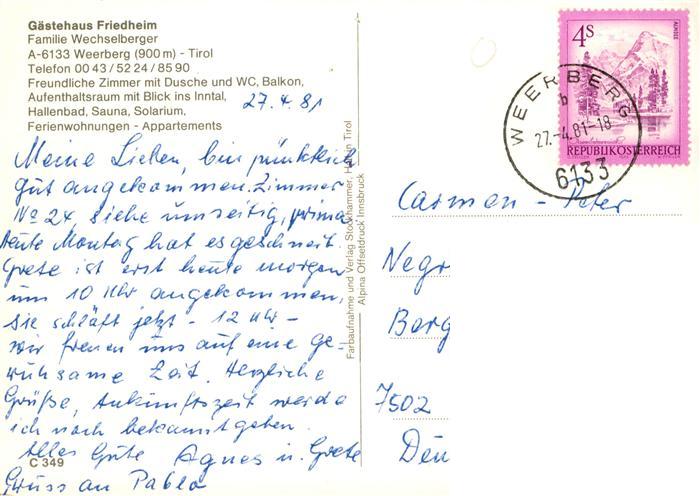 Gästehaus Friedheim
Familie Wechselberger
A-6133 Weerberg (900 m) - Tirol
Telefon 00 43 / 52 24 / 85 90
Freundliche Zimmer mit Dusche und WC, Balkon,
Aufenthaltsraum mit Blick ins Inntal,
Hallenbad, Sauna, Solarium,
Ferienwohnungen - Appartements
27.4.81
Meine Lieben, bin pünktlich
gut angekommen. Zimmer
No 24, siehe umseitig, prima
heute Montag hat es geschneit.
Grete ist erst heute morgen
um 10 Uhr angekommen.
Sie schläft jetzt - 12 Uhr -
wir freuen uns auf eine ge-
ruhsame Zeit. Herzliche
Grüße, Ankunftszeit werde
ich noch bekanntgeben.
Alles Gute Agnes u. Grete
Gruss an Pablo
C 349
Farbaufnahme und Verlag Stockhammer, Hall in Tirol
Alpina Offsetdruck Innsbruck
4S
ALMSEE
REPUBLIK ÖSTERREICH
WEERBERG
b
27.-4.81-18
6133
Carmen - Peter
Negr
Berg
7502
Den